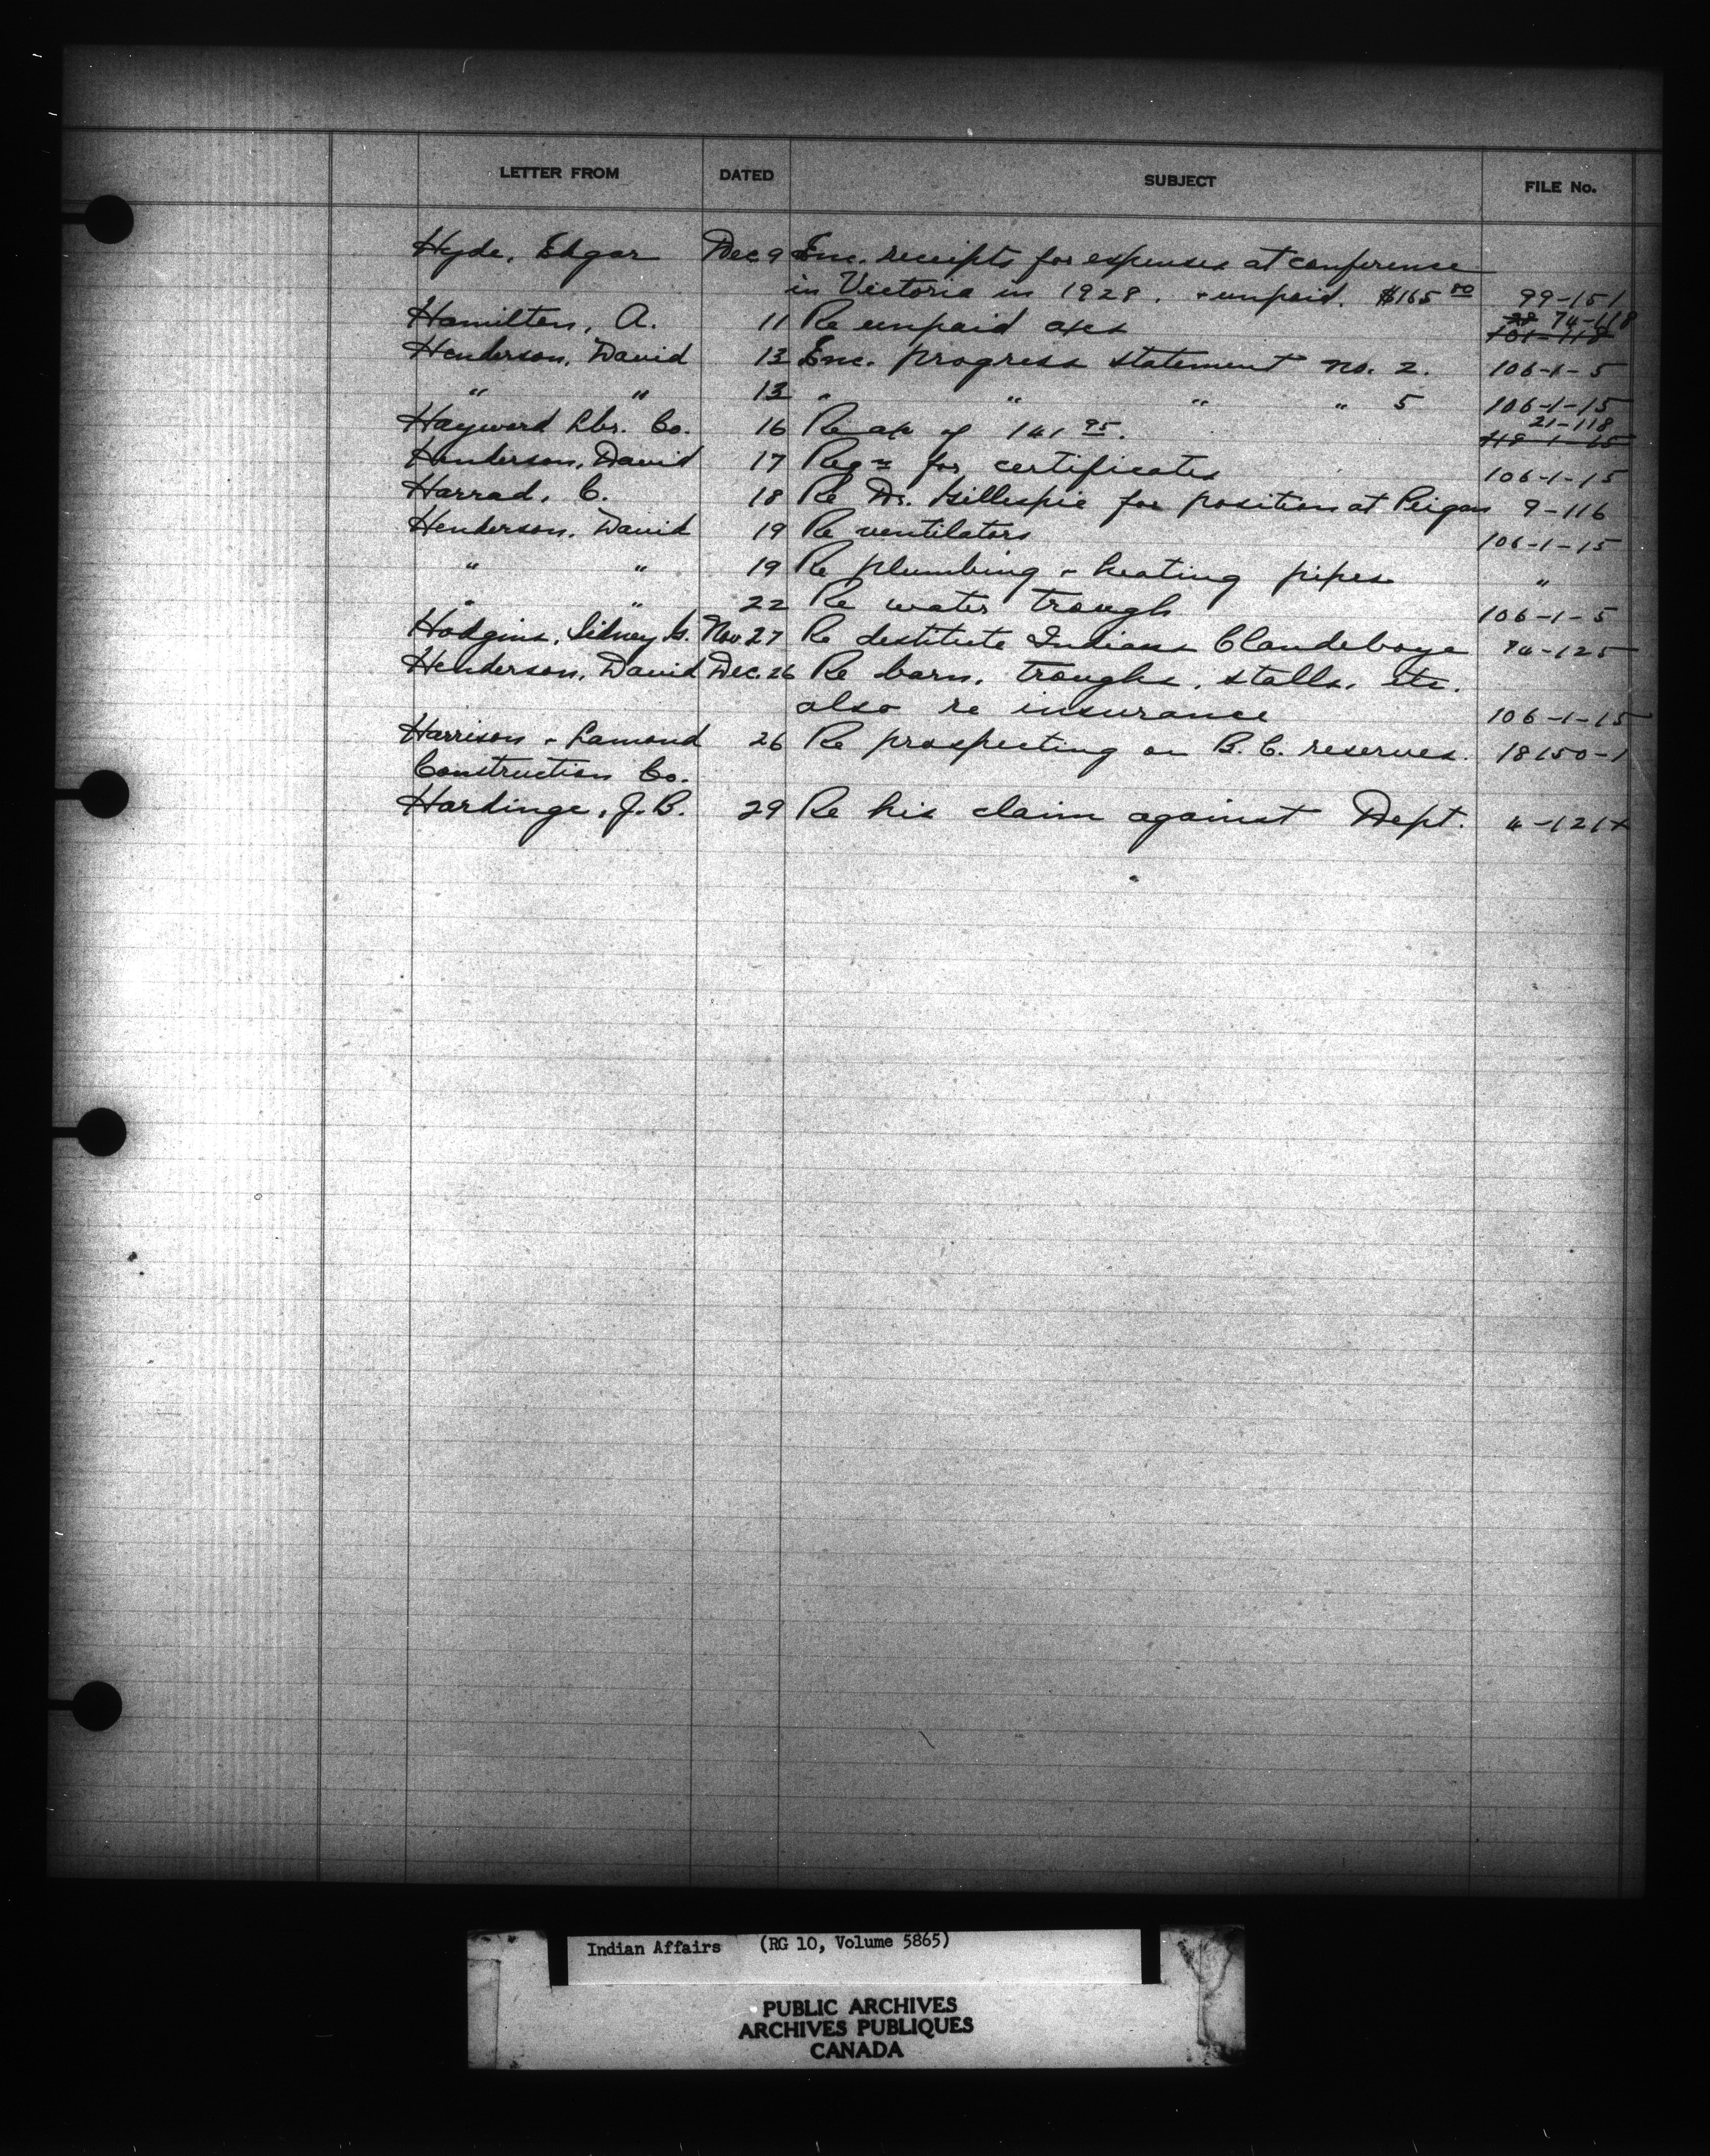 LETTER FROM DATED SUBJECT FILE No.
Hyde, Edgar Dec 9 Enc. receipts for expenses at conference
in Victoria in 1928. + unpaid. $165 00 99-151
Hamilton, A. 11 Re unpaid a/cs 28 74-118
101-118
Henderson, David 13 Enc. progress statement no. 2. 106-1-5
" " 13 " " " " 5 106-1-15
21-118
Hayward Lbr. Co. 16 Re a/c of 141 95.
Henderson, David 17 Reqn for certificates 106-1-15
Harrad, C. 18 Re Dr. Gillespie for position at Peigan 9-116
Henderson, David 19 Re ventilators 106-1-15
" " 19 Re plumbing + heating pipes "
" " 22 Re water trough 106-1-5
Hodgins, Sidney G. Nov 27 Re destitute Indians Clandeboye 74-125
Henderson, David Dec. 26 Re barn, troughs, stalls, etc.
also re insurance 106-1-15
Harrison + Lamond 26 Re prospecting on B.C. reserves. 18150-1
Construction Co.
Hardinge, J.B. 29 Re his claim against Dept. 4-121x
Indian Affairs (RG 10, Volume 5865)
PUBLIC ARCHIVES
ARCHIVES PUBLIQUES
CANADA